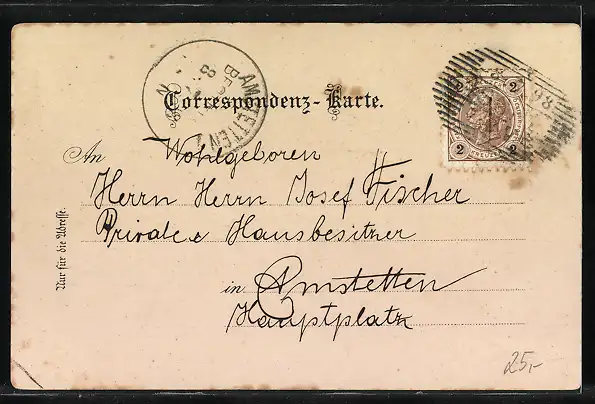 Correspondenz-Karte.
AMSTETTEN
98
2 2
KREUZER
2 2
An Wohlgeboren
Herrn Herrn Josef Fischer
Private e Hausbesitzer
in Amstetten
Hauptplatz
Nur für die Adresse.
25,-